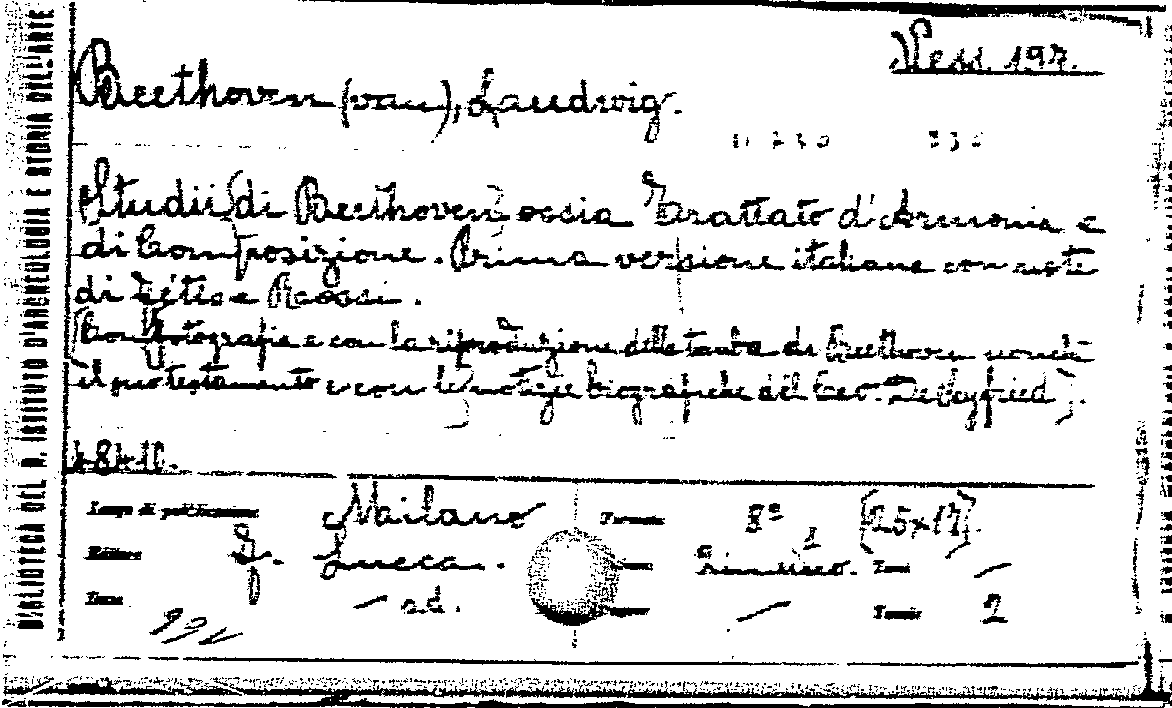 BIBLIOTECA DEL R. ISTITUTO D'ARCHEOLOGIA E STORIA DELL'ARTE
Vess. 197.
Beethoven (van), Laudwig.
Studii di Beethoven ossia Trattato d'Armonia e
di Composizione. Prima versione italiana con note
di Fétis e Rossi.
[Con fotografie e con la riproduzione della tomba di Beethoven nonchè
il suo testamento e con le notizie biografiche del Cav. De Seyfried].
Luogo di pubblicazione Milano Formato 8º [25x17].
Editore F. Lucca.
Tomo - ed. - Tomi 2